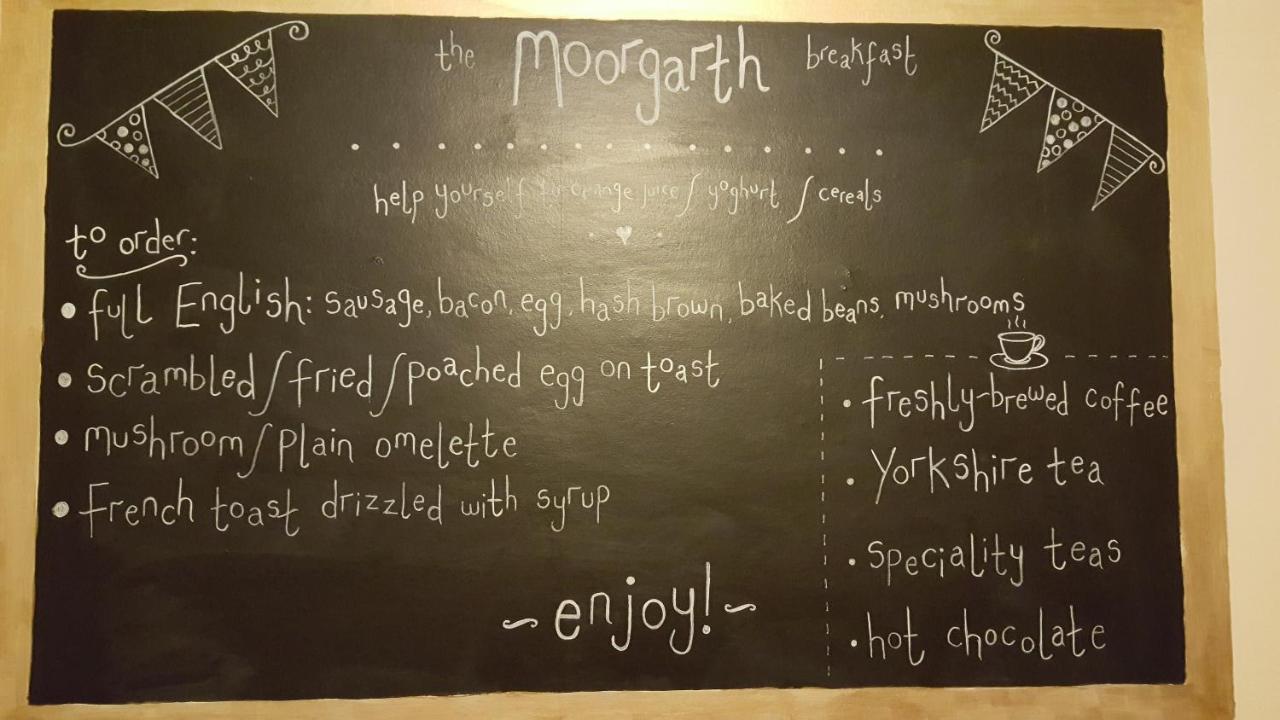 the Moorgarth breakfast
help yourself to orange juice / yoghurt / cereals
to order:
• full English: sausage, bacon, egg, hash brown, baked beans, mushrooms
• scrambled/fried/poached egg on toast
• mushroom/plain omelette
• French toast drizzled with syrup
~ enjoy! ~
• freshly-brewed coffee
• Yorkshire tea
• speciality teas
• hot chocolate